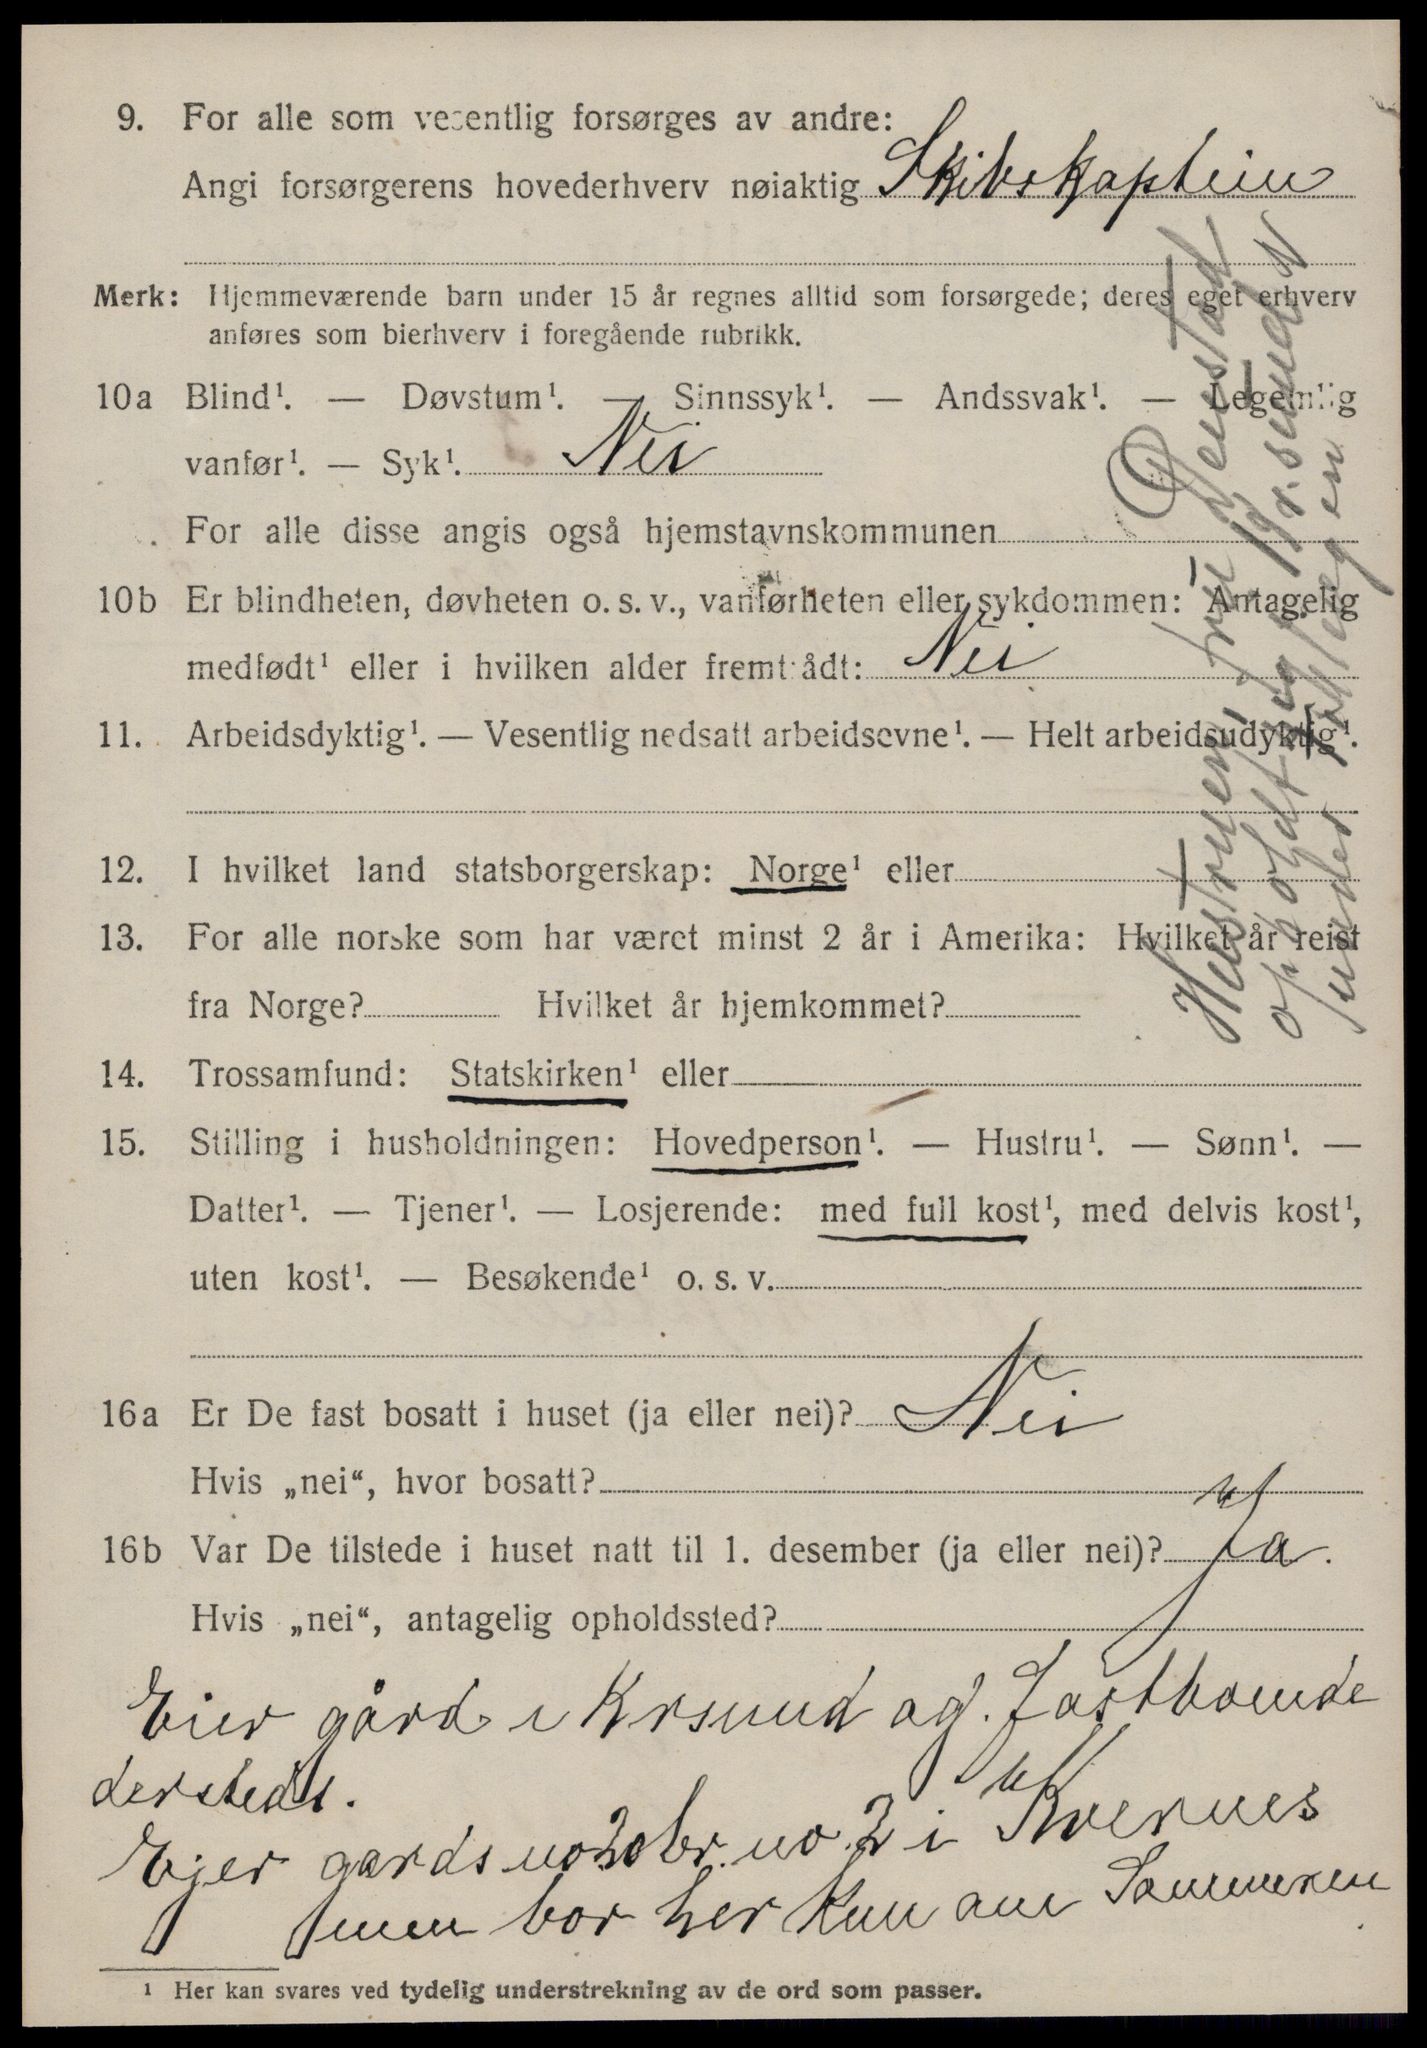 9. For alle som vesentlig forsørges av andre:
Angi forsørgerens hovederhverv nøiaktig Skibskaptein
Merk: Hjemmeværende barn under 15 år regnes alltid som forsørgede; deres eget erhverv
anføres som bierhverv i foregående rubrikk.
10a Blind¹. — Døvstum¹. — Sinnssyk¹. — Andssvak¹. — Legemlig
vanfør¹. — Syk¹. Nei
For alle disse angis også hjemstavnskommunen
10b Er blindheten, døvheten o. s. v., vanførheten eller sykdommen: Antagelig
medfødt¹ eller i hvilken alder fremtrådt: Nei
11. Arbeidsdyktig¹. — Vesentlig nedsatt arbeidsevne¹. — Helt arbeidsudyktig¹.
12. I hvilket land statsborgerskap: Norge¹ eller
13. For alle norske som har været minst 2 år i Amerika: Hvilket år reist
fra Norge? Hvilket år hjemkommet?
14. Trossamfund: Statskirken¹ eller
15. Stilling i husholdningen: Hovedperson¹. — Hustru¹. — Sønn¹. —
Datter¹. — Tjener¹. — Losjerende: med full kost¹, med delvis kost¹,
uten kost¹. — Besøkende¹ o. s. v.
16a Er De fast bosatt i huset (ja eller nei)? Nei
Hvis „nei“, hvor bosatt?
16b Var De tilstede i huset natt til 1. desember (ja eller nei)? Ja.
Hvis „nei“, antagelig opholdssted?
Eier gård i Krsund og fastboende
dersteds.
Ejer gards no 20 br. no. 2 i Kvernes
men bor her kun om Sommeren
¹ Her kan svares ved tydelig understrekning av de ord som passer.
Hustruen, fru Denstad
opholdt sig i Kr.sund N
under tellingen